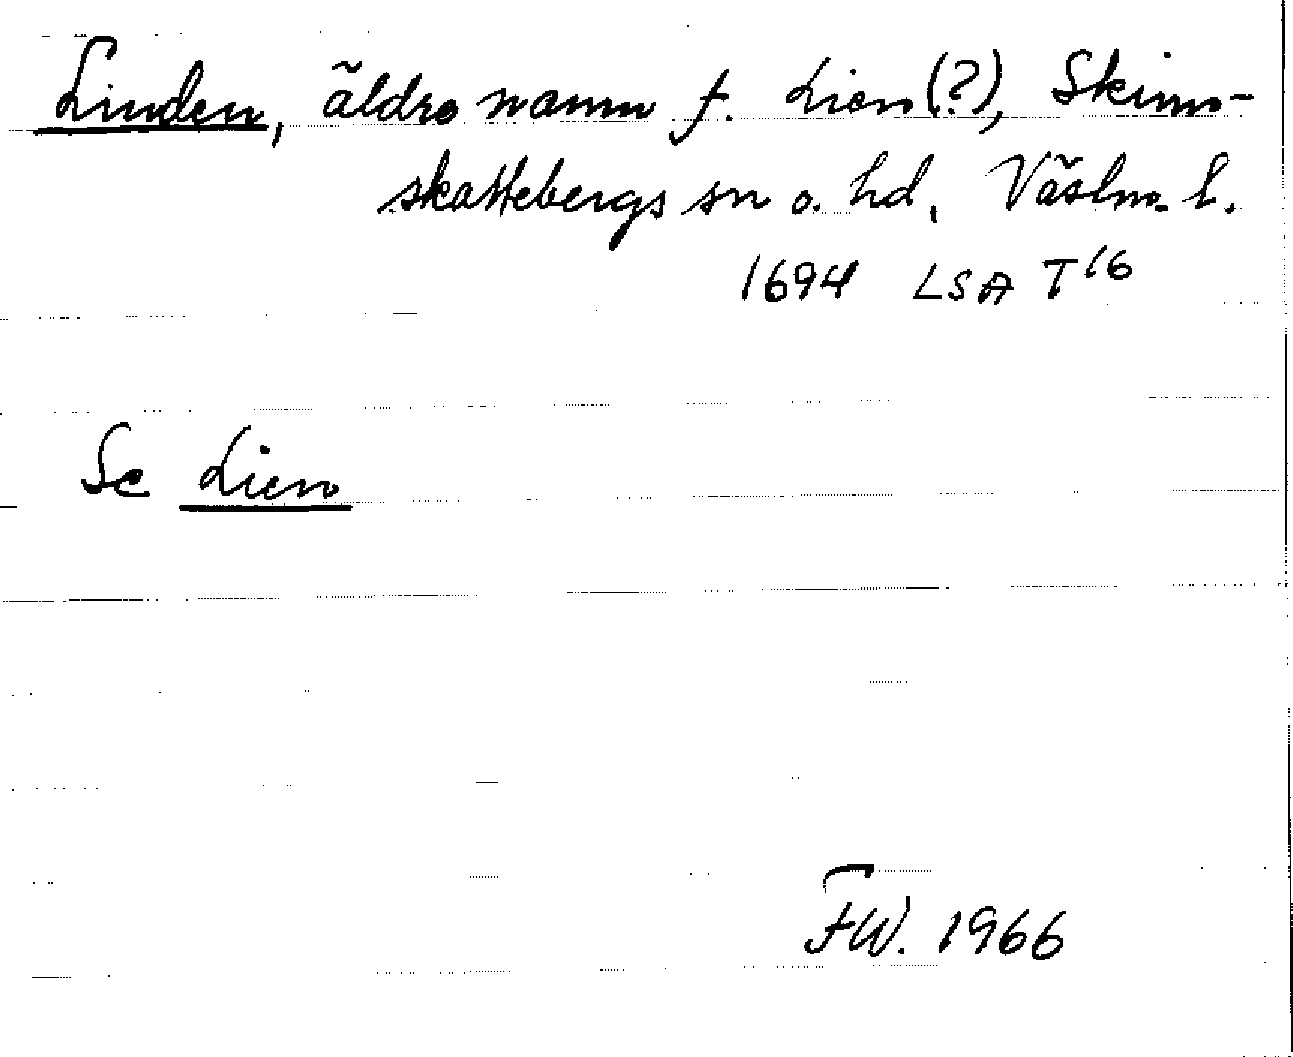 Linden, äldre namn f. Lien(?), Skinn-
skattebergs sn o. hd, Västm. l.
1694 LSA T16
Se Lien
FW. 1966